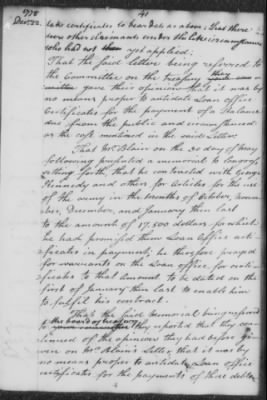 1778
Dec. 22.
41
take certificates to bear date as above; That there
were other claimants under the like circumstances
who had not yet applied:
That the said Letter being referred to
the Committee on the treasury
gave their opinion that it was by
no means proper to antidate Loan office
Certificates for the payment of a Balance
due from the public and circumstanced
as the case mentioned in the said Letter:
That Mr. Blain on the 30 day of May
following presented a memorial to Congress,
setting forth, that he contracted with George
Kennedy and others for Articles for the use
of the army in the months of October, Novem
ber, December, and January then last
to the amount of 17,500 dollars for which
he had promised them Loan Office certi-
ficates in payment; he therefore prayed
for warrants on the Loan office for certi-
ficates to that Amount to be dated on the
first of January then last to enable him
to fulfil his contract.
That the said Memorial being referred
to the board of treasury they reported that they con-
tinued of the opinion they had before gi-
ven on Mr. Blain's Letter, that it was by
no means proper to antidate Loan office
certificates for the payments of these debts